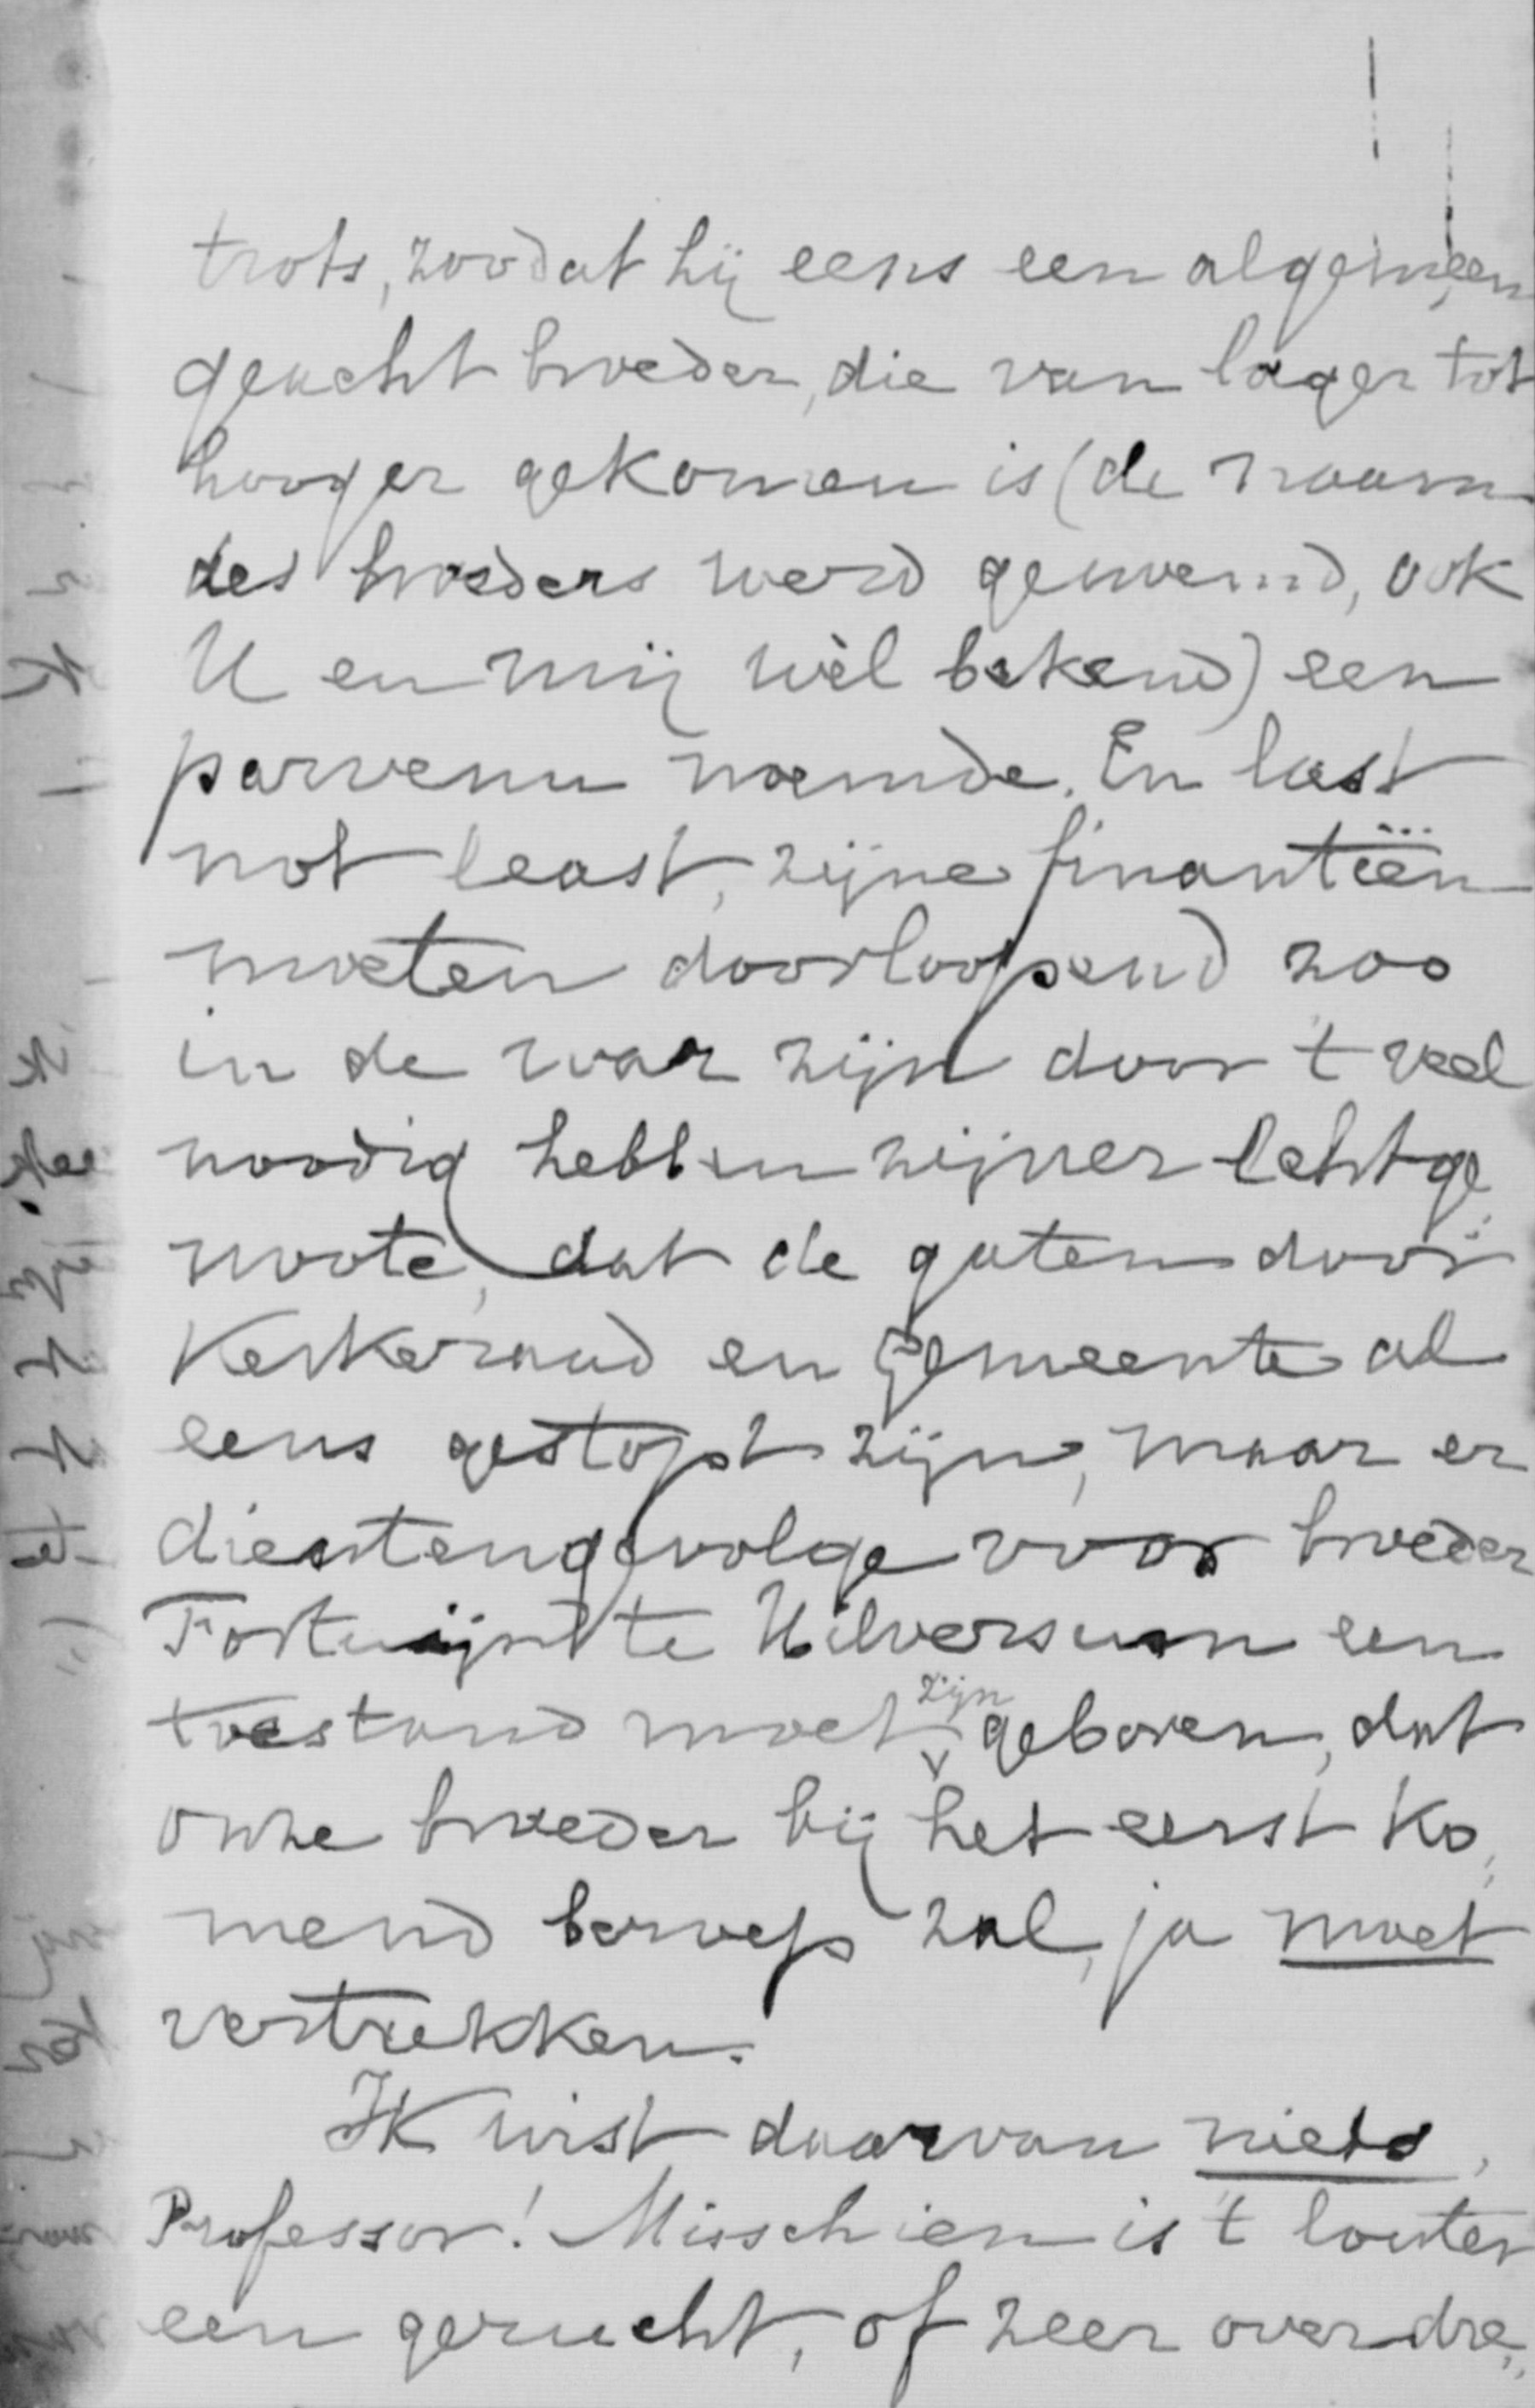 trots, zoodat hij eens een algemeen
geacht broeder, die van lager tot
hooger gekomen is (de naam
des broeders werd genoemd, ook
U en mij wèl bekend) een
parvenu noemde. En last
not least, zijne finantiëen
moeten doorloopend zoo
in de war zijn door 't veel
noodig hebben zijner echtge„
noote, dat de gaten door
Kerkeraad en Gemeente al
eens gestopt zijn, maar er
dientengevolge voor broeder
Fortuijn te Hilversum een
toestand moet zijn geboren, dat
onze broeder bij het eerst ko„
mend beroep zal, ja moet
vertrekken.
Ik wist daarvan niets,
Professor! Misschien is 't louter
een gerucht, of zeer overdre„